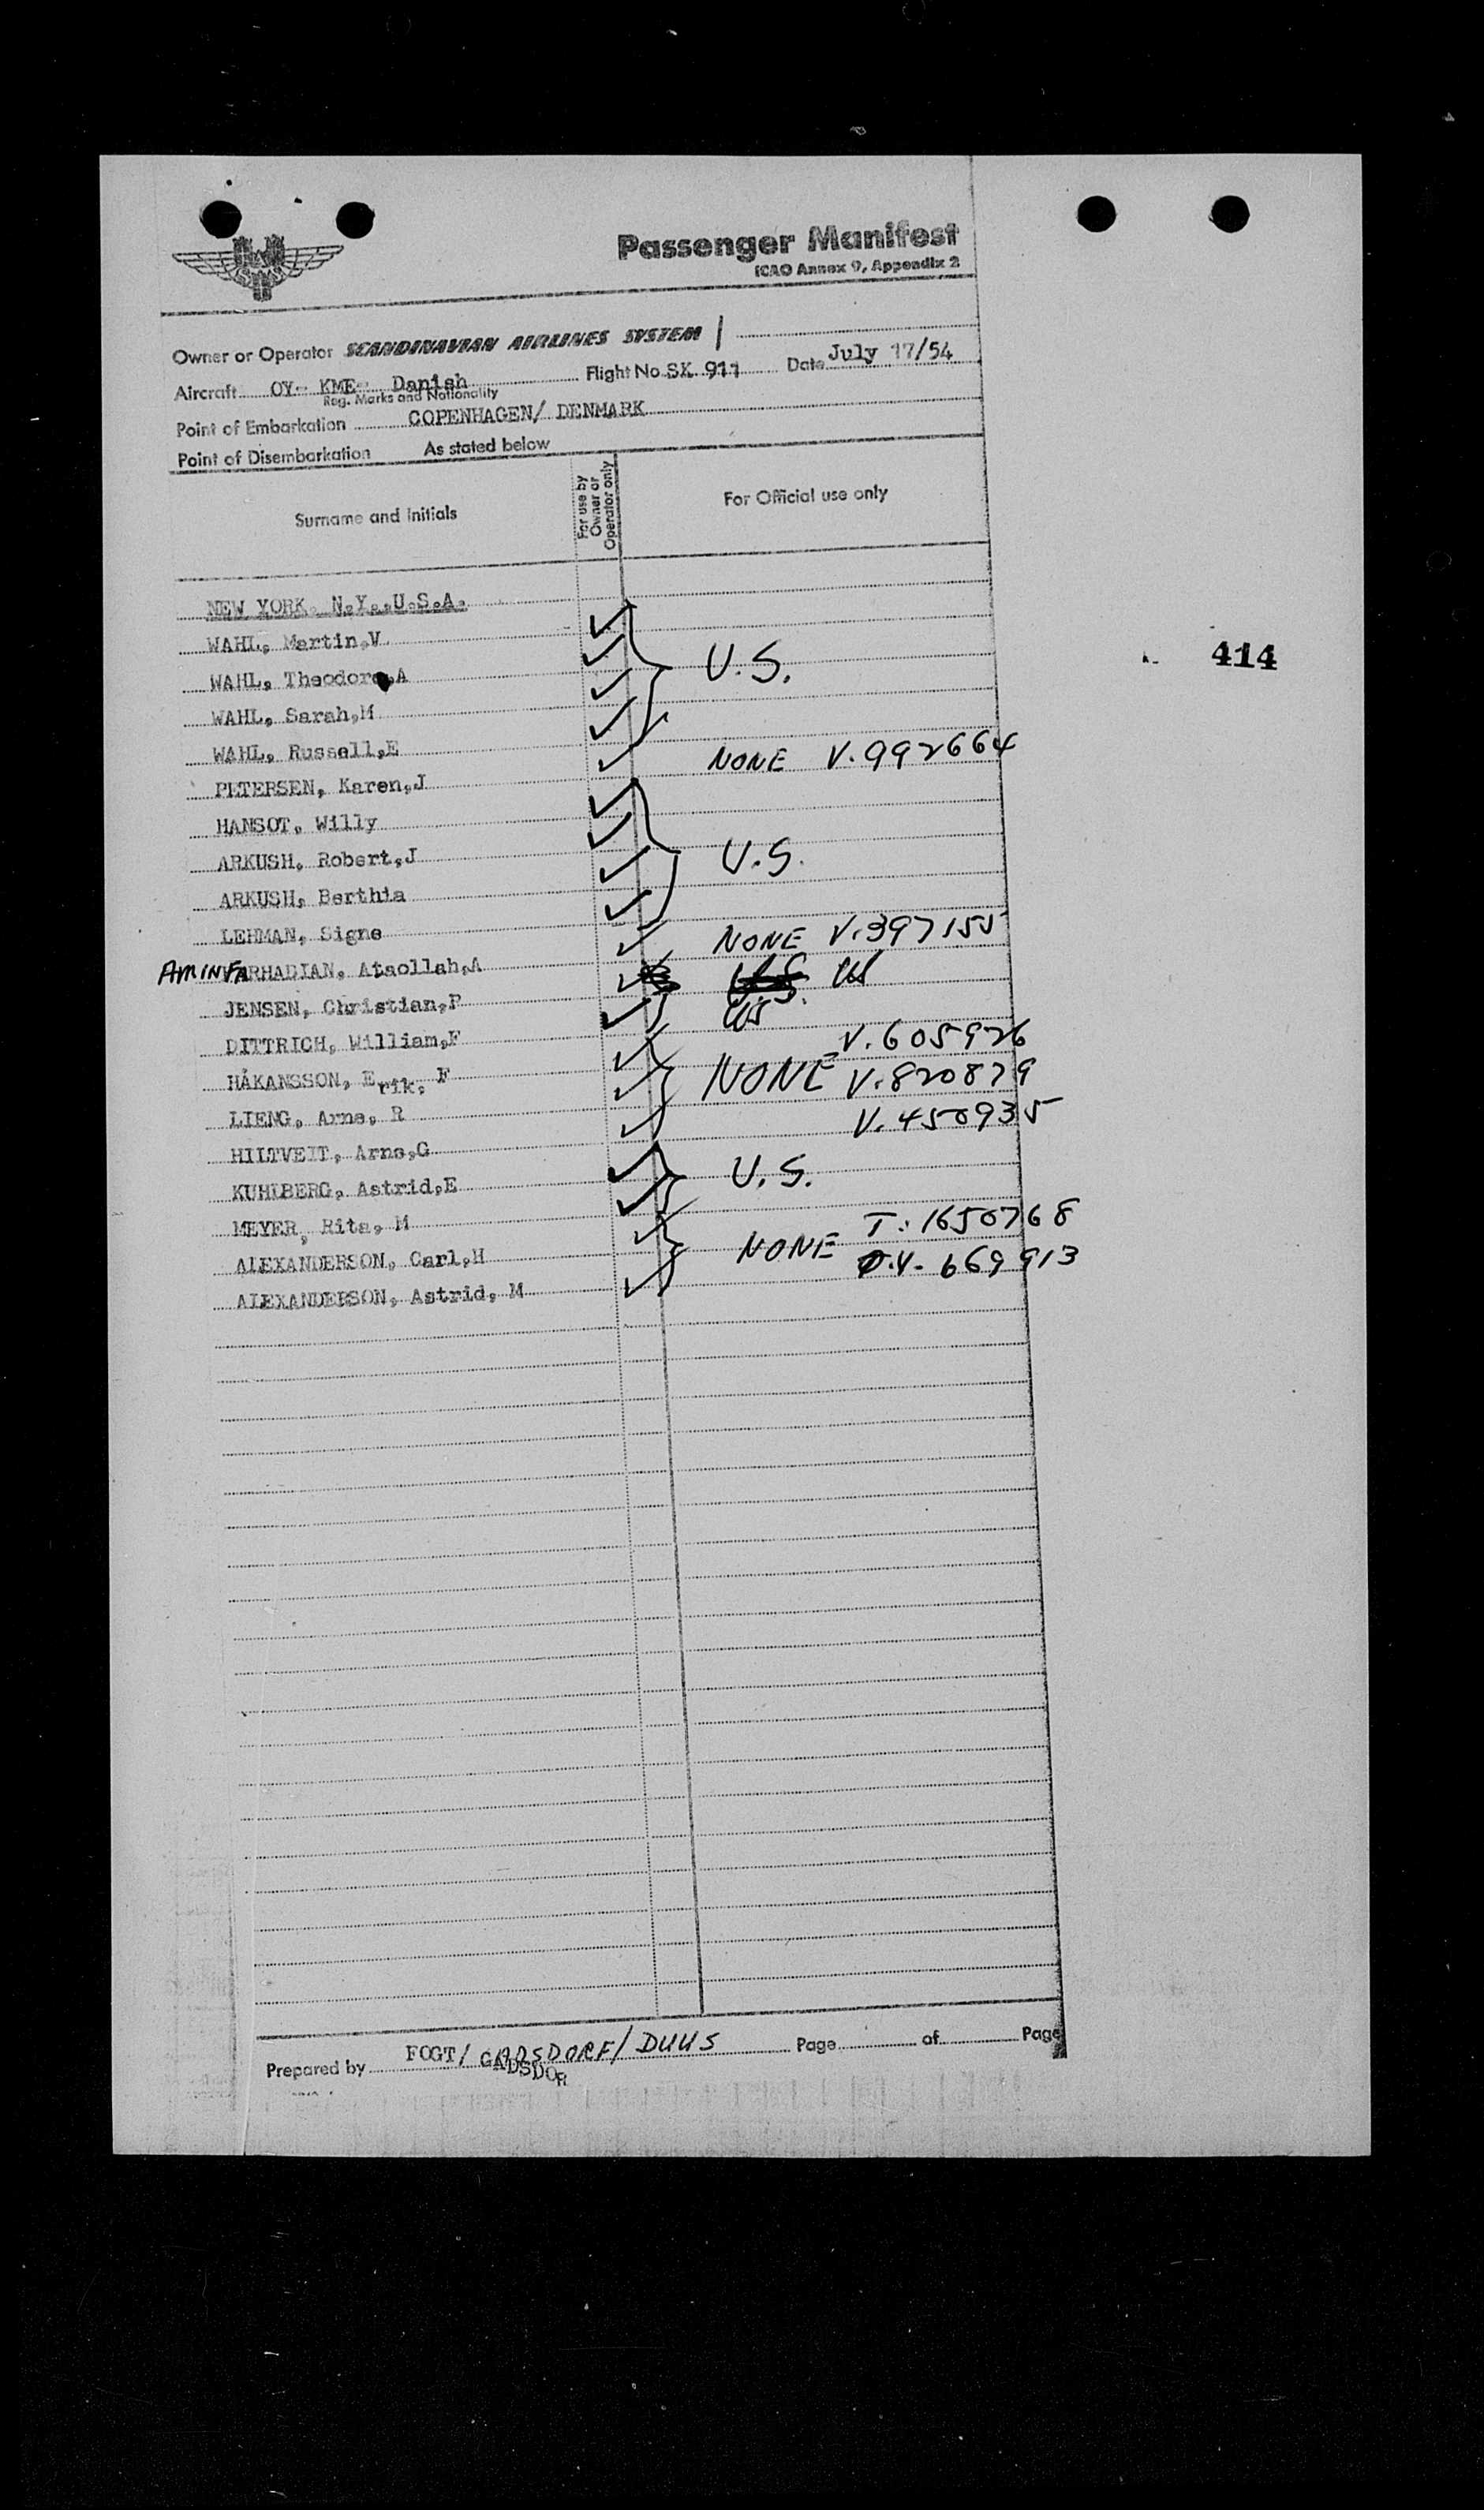 Passenger Manifest
ICAO Annex 9, Appendix 2
Owner or Operator SCANDINAVIAN AIRLINES SYSTEM
Aircraft OY- KME- Danish Flight No SK 911 Date July 17/54
Reg. Marks and Nationality
Point of Embarkation COPENHAGEN/ DENMARK
Point of Disembarkation As stated below
Surname and Initials For use by Owner or Operator only For Official use only
NEW YORK, N.Y.,U.S.A.
WAHL, Martin,V
WAHL, Theodore,A U.S.
414
WAHL, Sarah,M
WAHL, Russell,E
PETERSEN, Karen,J NONE V.992664
HANSOT, Willy
ARKUSH, Robert,J
ARKUSH, Berthia U.S.
LEHMAN, Signe
AMIN FARHADIAN, Ataollah,A NONE V.397155
JENSEN, Christian,P US
DITTRICH, William,F US
HÅKANSSON, Erik, F V.605926
LIENG, Arne, R NONE V.820879
HILTVEIT, Arne,G V.450935
KUHLBERG, Astrid,E U.S.
MEYER, Rita, M
ALEXANDERSON, Carl,H T.1650768
ALEXANDERSON, Astrid, M NONE V. 669913
Prepared by FOGT/ GADSDORF/DUUS Page of Page
GADSDOR